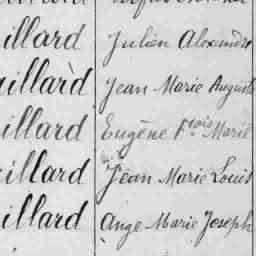 illard Julien Alexandre
aillard Jean Marie Auguste
illard Eugène Fçois Marie
aillard Jean Marie Louis
illard Ange Marie Joseph